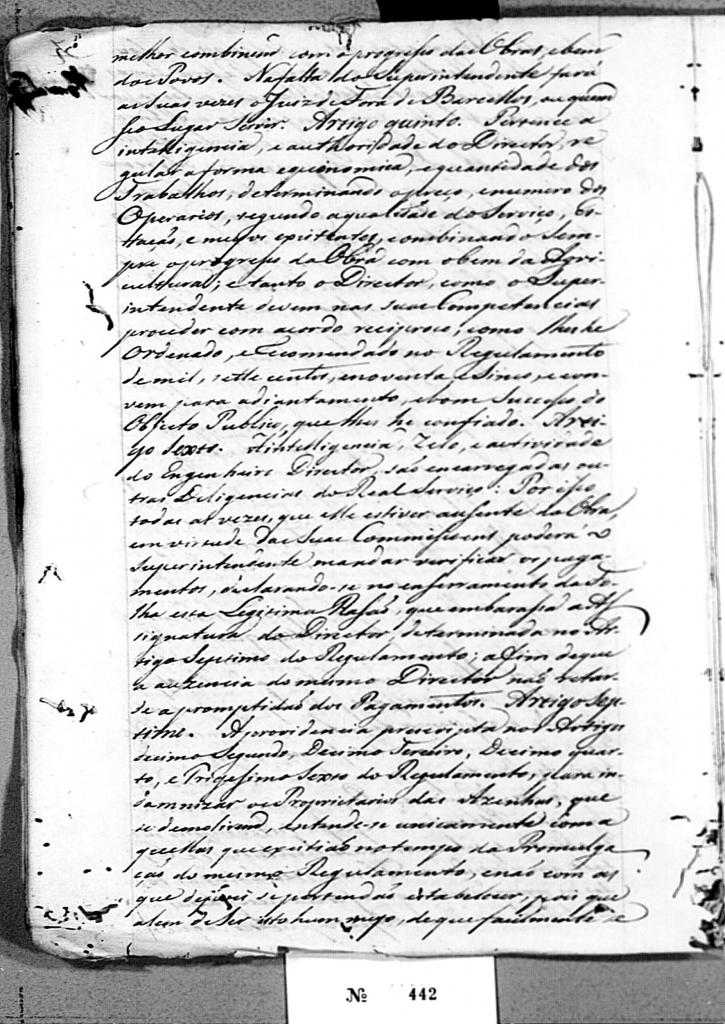 melhor combinem com o progresso das Obras, e bem
dos Povos. Na falta do Superintendente fará
as suas vezes o Juiz de Fora de Barcellos, ou quem
seo Lugar Servir. Artigo quinto. Pertence a
intelligencia, e authoridade do Director, re
gular a forma economica, e quantidade dos
Trabalhos, determinando o preço, e numero dos
Operarios, segundo a qualidade do Serviço, Es-
tação, e meyos existentes, combinando Sem-
pre o progresso da Obra com o bem da Agri-
cultura; e tanto o Director, como o Super-
intendente devem nas suas Competencias
proceder com acordo reciproco, como lhes he
Ordenado, e recomendado no Regulamento
de mil, sette centos, e noventa e Sinco, e con-
vem para adiantamento, e bom Successo do
Objecto Publico, que lhes he confiado. Arti-
go Sexto. A intelligencia, Zelo, e actividade
do Engenheiro Director, são encarregadas ou-
tras Deligencias do Real Serviço: Por isso
todas as vezes, que elle estiver ausente da Obra,
em virtude das suas Commissoens, poderá o
Superintendente mandar verificar os paga-
mentos, declarando-se no enserramento da Fo-
lha esta Legitima Rasão, que embarassa a As
signatura do Director, determinada no Ar-
tigo Septimo do Regulamento; a fim de que
a auzencia do mesmo Director não retar-
de a promptidão dos Pagamentos. Artigo Sep-
timo. A providencia prescripta nos Artigos
decimo Segundo, Decimo Terceiro, Decimo quar-
to, e Trigessimo Sexto do Regulamento, para in-
damnizar os Proprietarios das Azenhas, que
se demolirem, entende-se unicamente com a
quellas que existião no tempo da Promulga
ção do mesmo Regulamento, e não com as
que depois se pertendão estabelecer, pois que
alem de Ser isto hum meyo, de que facilmente se
Nº 442